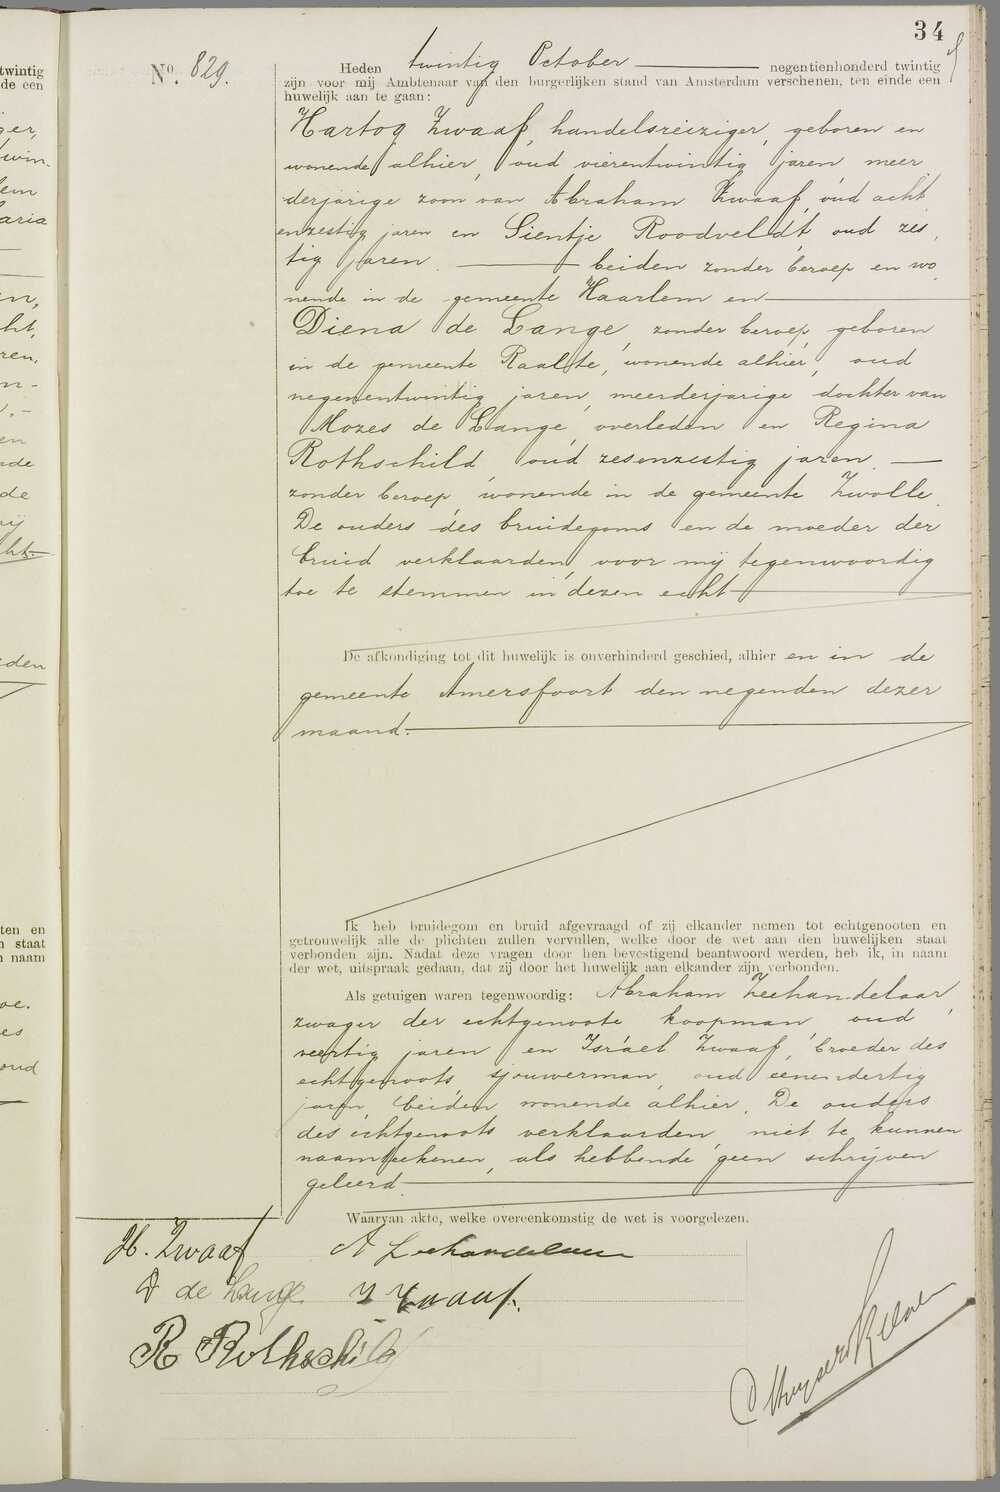 34
No. 829.
Heden twintig October negentienhonderd twintig
zijn voor mij Ambtenaar van den burgerlijken stand van Amsterdam verschenen, ten einde een
huwelijk aan te gaan:
Hartog Zwaaf, handelsreiziger, geboren en
wonende alhier, oud vierentwintig jaren meer
derjarige zoon van Abraham Zwaaf, oud acht
enzestig jaren en Sientje Roodveldt, oud zes
tig jaren beiden zonder beroep en wo
nende in de gemeente Haarlem en
Diena de Lange, zonder beroep, geboren
in de gemeente Raalte, wonende alhier, oud
negenentwintig jaren, meerderjarige dochter van
Mozes de Lange, overleden en Regina
Rothschild oud zesenzestig jaren
zonder beroep wonende in de gemeente Zwolle.
De ouders des bruidegoms en de moeder der
bruid verklaarden voor mij tegenwoordig
toe te stemmen in dezen echt
De afkondiging tot dit huwelijk is onverhinderd geschied, alhier en in de
gemeente Amersfoort den negenden dezer
maand.
Ik heb bruidegom en bruid afgevraagd of zij elkander nemen tot echtgenooten en
getrouwelijk alle de plichten zullen vervullen, welke door de wet aan den huwelijken staat
verbonden zijn. Nadat deze vragen door hen bevestigend beantwoord werden, heb ik, in naam
der wet, uitspraak gedaan, dat zij door het huwelijk aan elkander zijn verbonden.
Als getuigen waren tegenwoordig: Abraham Zeehandelaar
zwager der echtgenoote koopman oud
veertig jaren en Israel Zwaaf, broeder des
echtgenoots, sjouwerman, oud eenendertig
jaren, beiden wonende alhier. De ouders
des echtgenoots verklaarden niet te kunnen
naamteekenen, als hebbende geen schrijven
geleerd
Waarvan akte, welke overeenkomstig de wet is voorgelezen.
H. Zwaaf A Zeehandelaar
D de Lange I Zwaaf.
R Rothschild